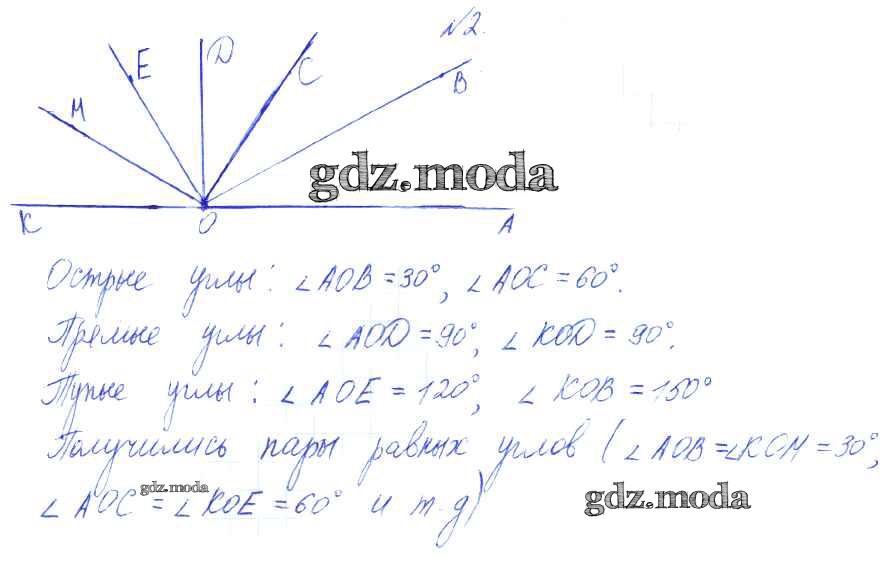 №2.
M E D C B
gdz.moda
K O A
Острые углы: ∠AOB = 30°, ∠AOC = 60°.
Прямые углы: ∠AOD = 90°, ∠KOD = 90°.
Тупые углы: ∠AOE = 120°, ∠KOB = 150°
Получились пары равных углов (∠AOB = ∠KOM = 30°,
gdz.moda
∠AOC = ∠KOE = 60° и т.д)
gdz.moda